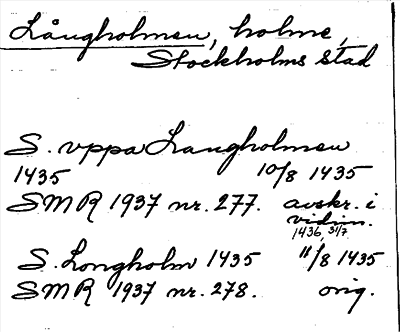 Långholmen, holme,
Stockholms stad
S. vppa Langholmen
1435 10/8 1435
SMR 1937 nr. 277. avskr. i
vidim.
1436, 31/7
S. Longholm 1435 11/8 1435
SMR 1937 nr. 278. orig.